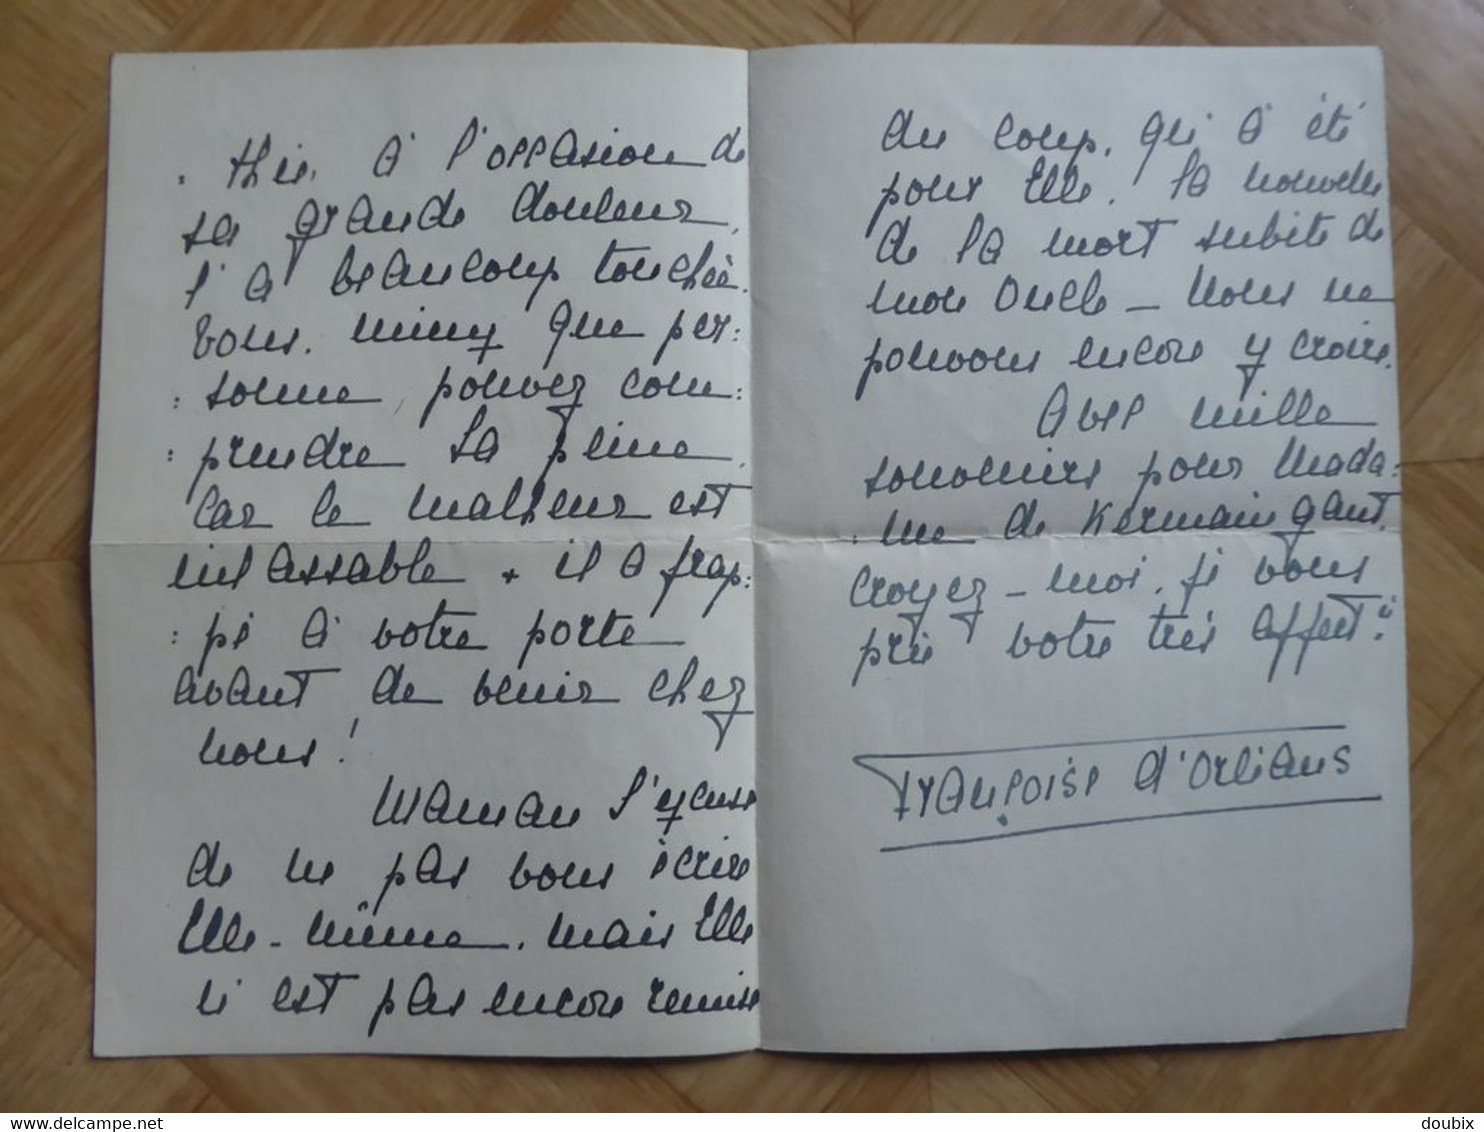 : thie, à l'occasion de
sa grande douleur,
l'a beaucoup touchée.
Vous, mieux que per:
: sonne, pouvez com:
: prendre sa peine,
car le malheur est
inlassable & il a frap:
: pé à votre porte
avant de venir chez
nous!
Maman s'excuse
de ne pas vous écrire
Elle-même, mais Elle
n'est pas encore remise
du coup, qui a été
pour Elle, la nouvelle
de la mort subite de
mon Oncle _ Nous ne
pouvons encore y croire.
Avec mille
souvenirs pour Mada:
: me de Kermaingant,
croyez-moi, je vous
prie votre très affect:ée
Françoise d'Orléans
www.delcampe.net
doubix